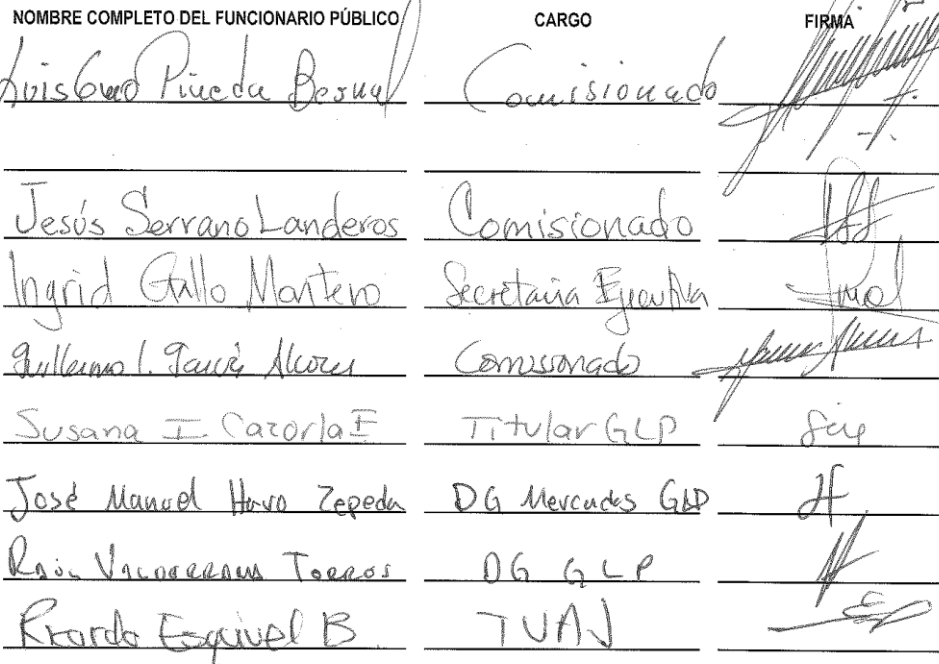 NOMBRE COMPLETO DEL FUNCIONARIO PÚBLICO CARGO FIRMA
Pineda Bernal Comisionado
Jesús Serrano Landeros Comisionado
Ingrid Gallo Montero Secretaria Ejecutiva
Guillermo I. García Alcocer Comisionado
Susana I Cazorla E Titular GLP
José Manuel Haro Zepeda DG Mercados GLP
Torres DG GLP
Ricardo Esquivel B TUAJ